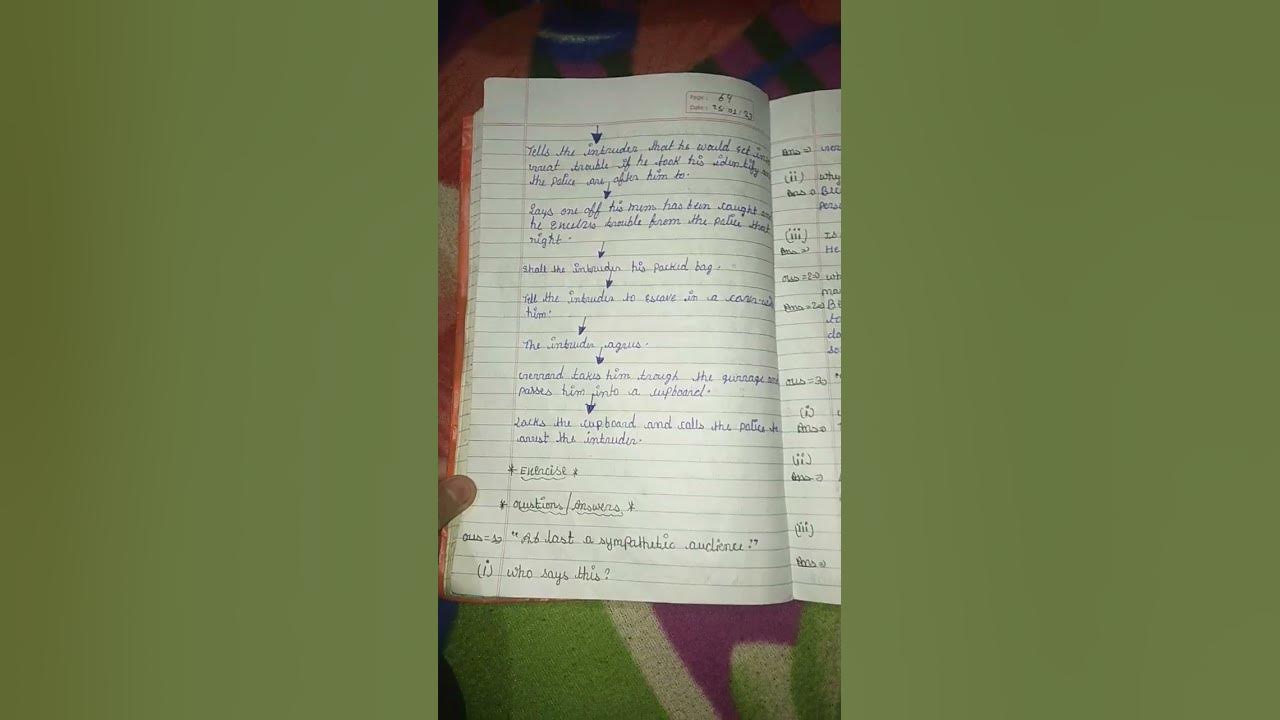 Page: 64
Date: 25 01 23
Tells the intruder that he would get in
great trouble if he took his identify
the police are after him to.
Says one off his mem has been caught
he trouble from the police that
night.
the intruder his packed bag.
Tell the intruder to escave in a
him.
The intruder agrus.
Gerrard takes him trough the gurrage
passes him into a cupboard.
Locks the cupboard and calls the police to
arrest the intruder.
* Exercise *
* Qustions/Answers *
Ous=1⇒ "At last a sympathetic audience."
(i) who says this?
Ans⇒
(ii) why
Ans⇒
(iii) Is
Ans⇒ He
Ous=2⇒ wh
Ans=2⇒ B
to
do
so
Ous=3⇒
(i)
Ans⇒
(ii)
Ans⇒
(iii)
Ans⇒